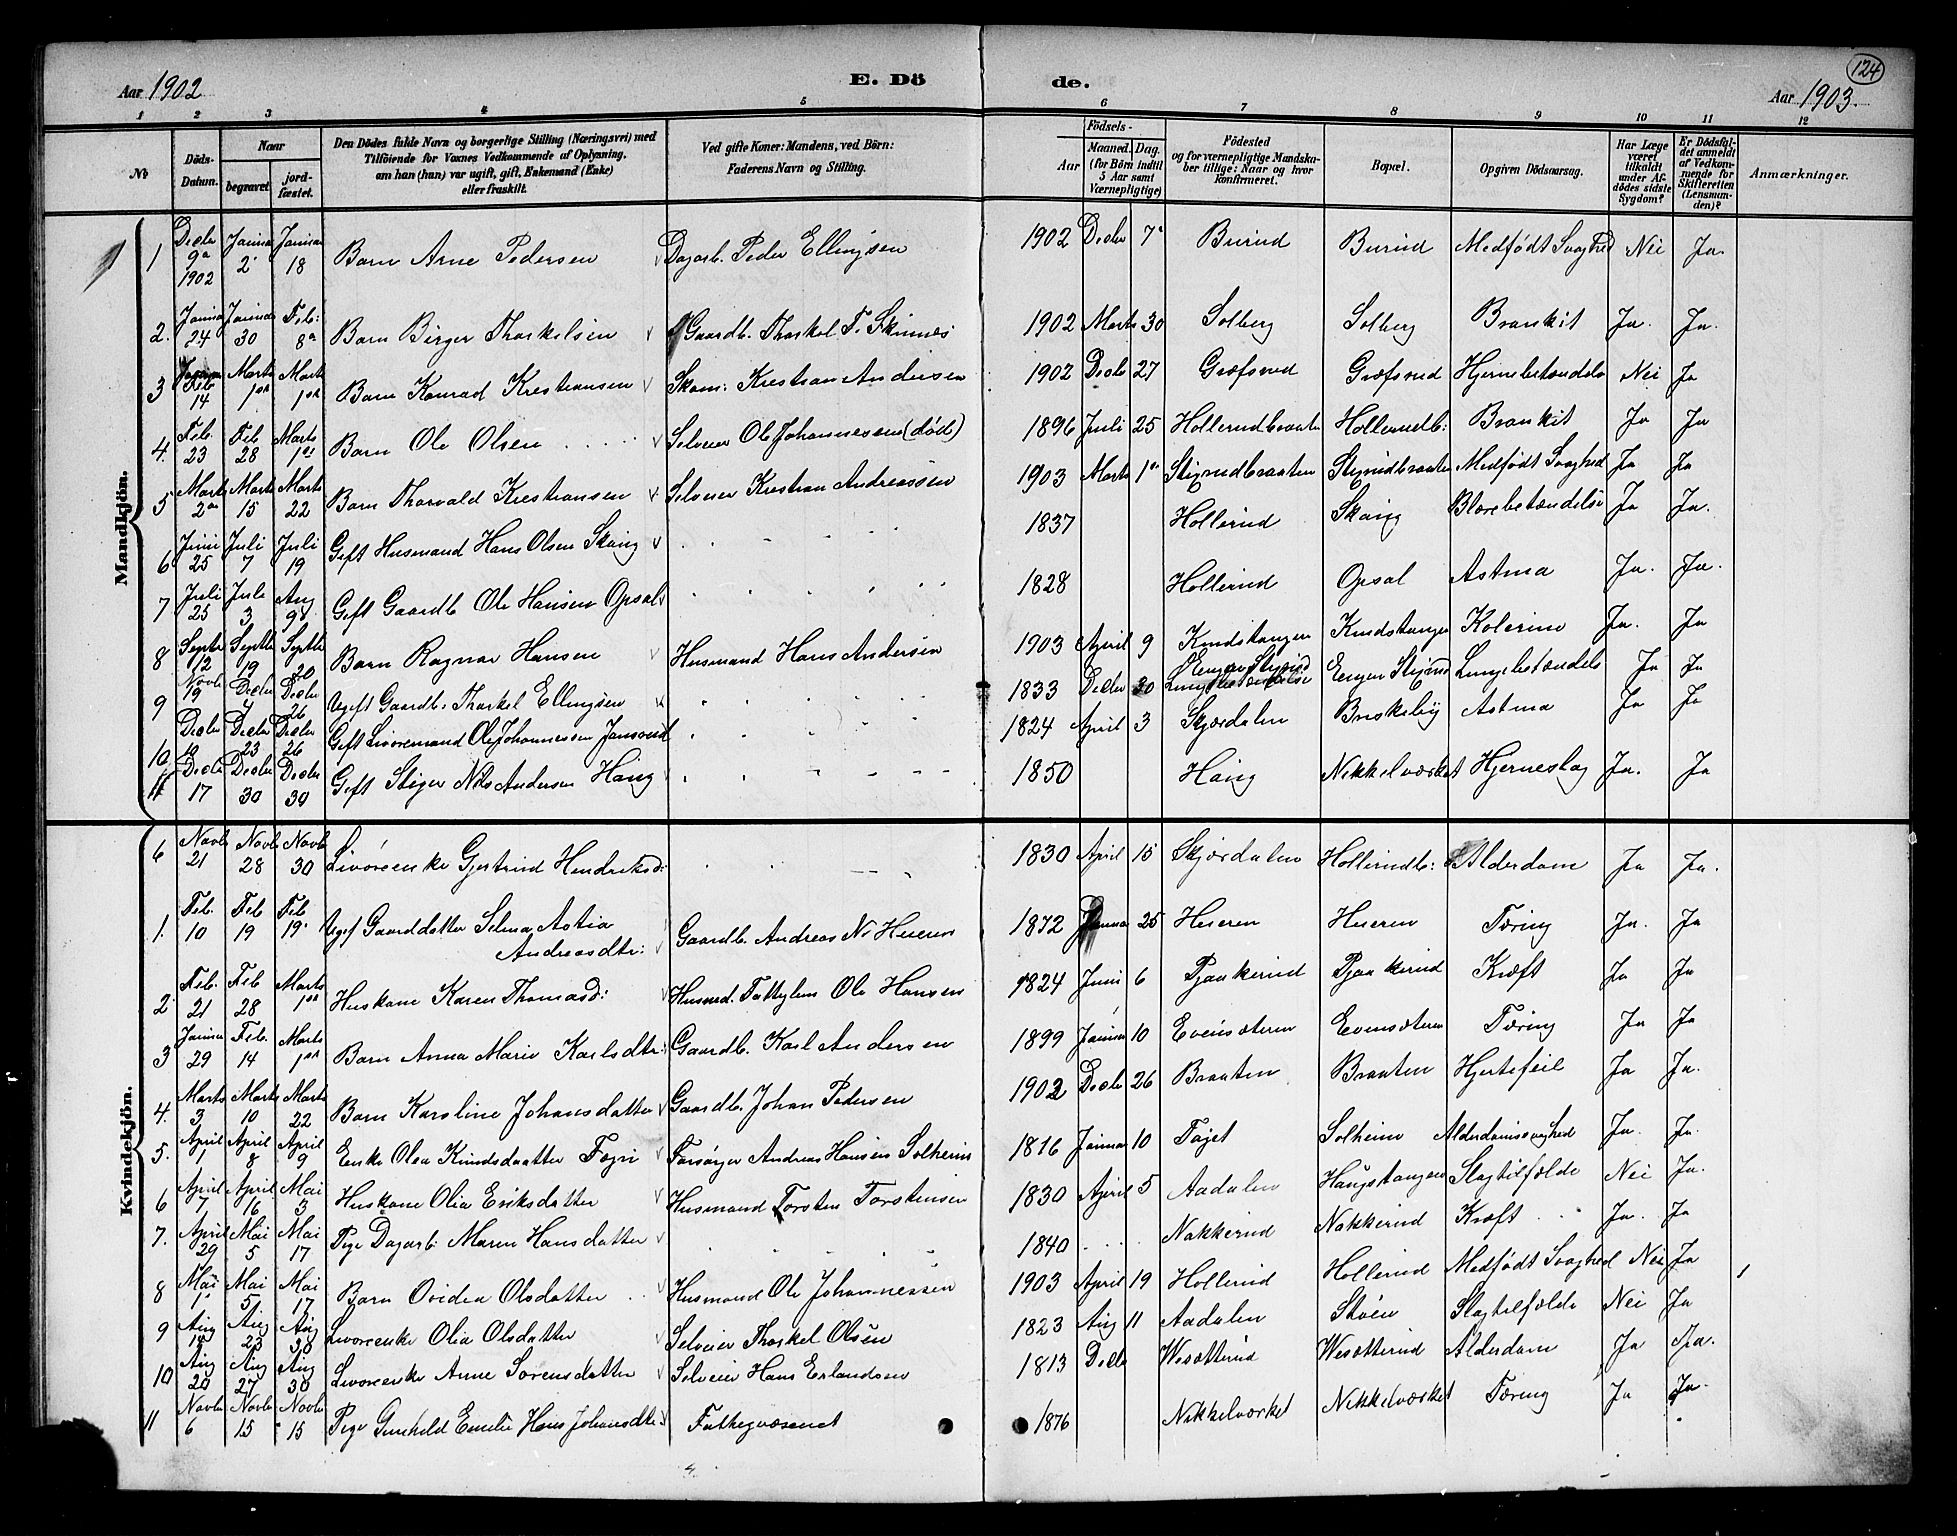 Aar 1902 E. Dö de. 124 Aar 1903.
1 2 3 4 5 6 7 8 9 10 11 12
№ Döds-Datum. Naar begravet jordfæstet. Den Dödes fulde Navn og borgerlige Stilling (Næringsvei) med Tilföiende for Voxnes Vedkommende af Oplysning, om han (hun) var ugift, gift, Enkemand (Enke) eller fraskilt. Ved gifte Koner: Mandens, ved Börn: Faderens Navn og Stilling. Aar Födsels- Maaned. Dag. (for Börn indtil 5 Aar samt Værnepligtige) Födested og for værnepligtige Mandskaber tillige: Naar og hvor konfirmeret. Bopæl. Opgiven Dödsaarsag. Har Læge været tilkaldt under Afdödes sidste Sygdom? Er Dödsfaldet anmeldt af Vedkommende for Skifteretten (Lensmanden)? Anmærkninger.
Mandkjön.
1 Decbr 9de 1902 Januar 2 Januar 18 Barn Arne Pedersen Dagarb. Peder Ellingsen 1902 Decbr 7 Burud Burud Medfödt Svaghed Nei Ja.
2. Januar 24 Januar 30 Feb: 8de Barn Birger Thorkelsen Gaardb. Thorkel T. Skinnes 1902 Marts 30 Solberg Solberg Bronkit Ja. Ja.
3 Feb 14 Marts 1ste Marts 1ste Barn Konrad Kristiansen Skom: Kristian Andersen 1902 Decb 27 Græfsrud Græfsrud Hjernebetændelse Nei Ja
4. Feb. 23 Feb 28 Marts 1ste Barn Ole Olsen Selveier Ole Johannessen (död) 1896 Juli 25 Hollerudbraaten Hollerudb: Bronkit Ja Ja
5 Marts 2den Marts 15 Marts 22 Barn Thorvald Kristiansen Selveier Kristian Andreassen 1903 Marts 1 Stigrudbraaten Stigrudbraaten Medfödt Svaghed Ja Ja
6 Juni 25 Juli 7 Juli 19 Gift Husmand Hans Olsen Skaug 1837 Hollerud Skaug Blærebetændelse Ja Ja.
7 Juli 25 Jule 3 Aug 9 Gift Gaardb Ole Hansen Opsal 1828 Hollerud Opsal Astma Ja. Ja.
8 Septbr 12 Septbr 19 Septbr 20 Barn Ragnar Hansen Husmand Hans Andersen 1903 April 9 Knudstangen Knudstangen Kolerine Ja. Ja
9 Novb 19 Decbr 4 Decbr 26 Ugift Gaardb. Thorkel Ellingsen 1833 Decbr 30 Engen Stigrud Engen Stigrud Lungebetændels Ja Ja
10 Decbr 18 Decbr 23 Decbr 26 Gift Livöremand Ole Johannessen Jansrud 1824 April 3 Skjærdalen Buskeby Astma Ja Ja
11 Decbr 17 Decbr 30 Decbr 30 Gift Stiger Nils Andersen Haug 1850 Haug Nikkelværket Hjerneslag Ja. Ja
Kvindekjön.
6 Novb 21 Novb 28 Novb 30 Livöreenke Gjertrud Hendriksd: 1830 April 15 Skjærdalen Hollerudb: Alderdom Ja Ja.
1. Feb. 10 Feb 19 Feb 19 Ugif Gaarddatter Selma Astia
Andreasdtr: Gaardb. Andreas N. Hueren 1872 Januar 25 Hueren Hueren Tæring Ja. Ja
2 Feb. 21 Feb 28 Marts 1ste Huskone Karen Thomasd: Husmd. Fattiglem Ole Hansen 1824 Juni 6 Pjaakerud Pjaakerud Kræft Ja Ja
3 Januar 29 Feb. 14 Marts 1ste Barn Anna Marie Karlsdtr: Gaardb. Karl Andersen 1899 Januar 10 Evensæteren Evensæteren Tæring Ja Ja
4. Marts 3 Marts 10 Marts 22 Barn Karoline Johansdatter Gaardb. Johan Pedersen 1902 Decbr 26 Braaten Braaten Hjertefeil Ja Ja.
5. April 1 April 8 April 9 Enke Olea Knudsdatter Fegri Forsörger Andreas Hansen Solheim 1816 Januar 10 Tojet Solheim Alderdomssvaghed Ja. Ja.
6 April 7 April 16 Mai 3 Huskone Olia Eriksdatter Husmand Torsten Torstensen 1830 April 5 Aadalen Haugstangen Slagtilfælde Nei Ja.
7. April 29 Mai 5 Mai 17 Pige Dagarb: Maren Hansdatter 1840 Nakkerud Nakkerud Kræft Ja. Ja
8 Mai 1 Mai 5 Mai 17 Barn Ovidea Olsdatter Husmand Ole Johannessen 1903 April 19 Hollerud Hollerud Medfödt Svaghed Nei Ja
9 Aug 14 Aug 23 Aug 30 Livöreenke Olia Olsdatter Selveier Thorkel Olsen 1823 Aug 11 Aadalen Skoien Slagtilfælde Nei Ja
10 Aug 20 Aug 27 Aug 30 Livöreenke Anne Sörensdatter Selveier Hans Erlandsen 1813 Decbr Wesætterud Wesætterud Alderdom Ja Ja.
11 Novbr 6 Novbr 15 Novbr 15 Pige Gunhild Emelie Hans Johansdtr: Fattigvæsenet 1876 Nikkelværket Nikkelværket Tæring Ja Ja.